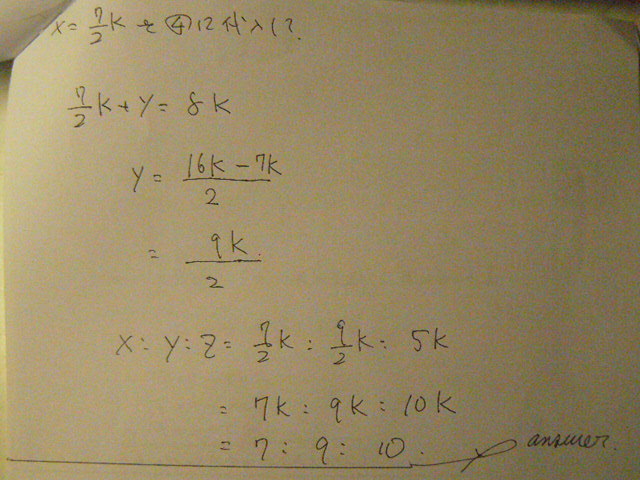 x = 7/2 K を ④に代入して.
7/2 K + Y = 8K
Y = (16K - 7K)/2
= 9K/2
X : Y : Z = 7/2 K : 9/2 K : 5K
= 7K : 9K : 10K
= 7 : 9 : 10. answer.